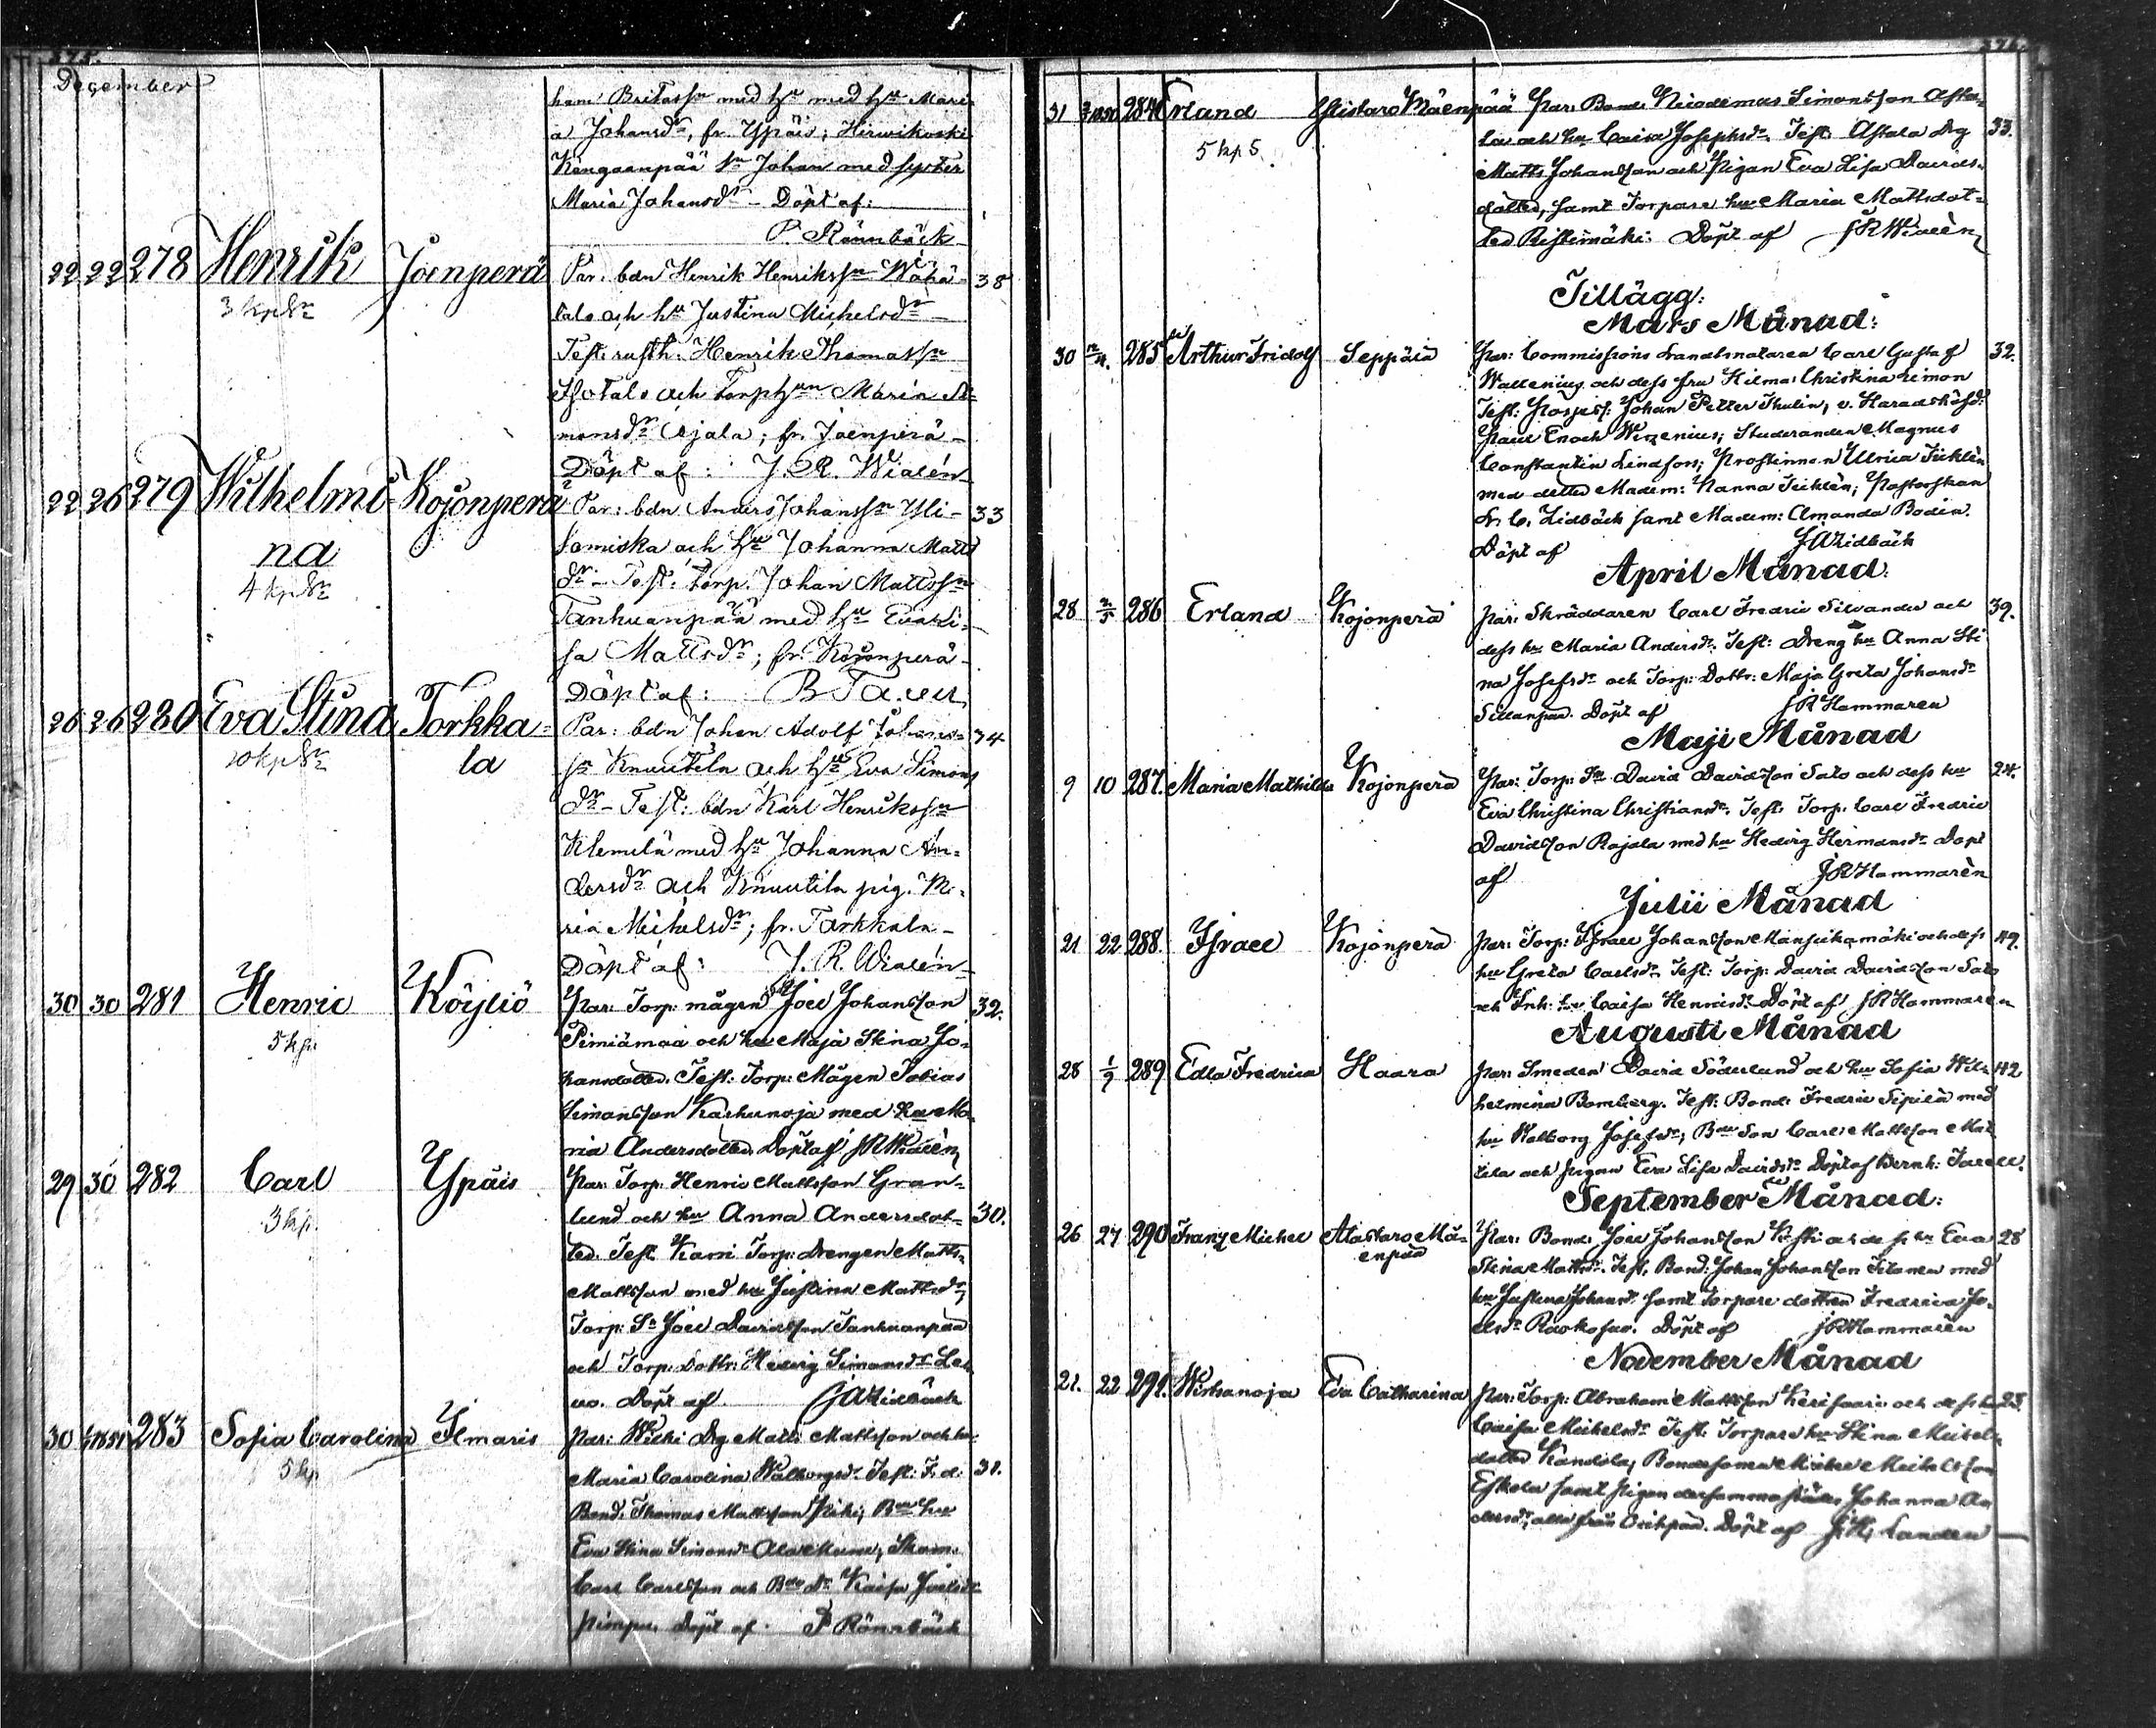 December
hem: Britass:n med h:u med h:u Mari
a Johansd:r, fr. Ypäis; Hirwikoski
Kengäanpää s:n Johan med syster
Maria Johansd:r – Döpt af:
P. Rännbäck
22 22 278 Henrik Joenperä Par. bdn Henrik Henrikss:n Wähä- 38
3 kp Sr
talo och h:u Justina Michelsd:r –
Test: rusth: Henrik Thomass:n
Isotalo och Torph:un Maria Si=
monsd:r Ojala; fr. Joenperä –
Döpt af: J. R. Widén
22 26 279 Wilhelmi- Kojonperä Par: bdn Anders Johanss:n Yli- 33
na
4 kp Sr
Somiska och h:u Johanna Matts
d:r – Test: Torp. Johan Mattss:n
Tanhuanpää med h:u Eva Li=
sa Mattsd:r; fr. Kojonperä –
Döpt af:
26 26 280 Eva Stina Torkka= Par: bdn Johan Adolf Johans= 34
la
20 kp Sr
s:n Knuutila och h:u Eva Simons
d:r – Test: bdn Karl Henrikss:n
Klemelä med h:u Johanna An=
dersd:r och Knuutila pig. Ma=
ria Michelsd:r; fr. Torkkala –
Döpt af: J. R. Widén
30 30 281 Henric Köyliö Par: Torp: mågen Joel Johansson 32.
5 kp.
och hu Maja Stina Jo=
hansdotter. Test: Torp: Mågen Tobias
Simonsson Karhunoja med hu Ma
ria Andersdotter Döpt af JR Widén
29 30 282 Carl Ypäis Par: Torp: Henric Mattsson Gran=
3 kp.
lund och hu Anna Andersdot= 30.
ter. Test Torp: Drengen Matts
Mattsson med hu Justina Mattsd:r,
Torp: S:n Joel Davidsson Tanhuanpää
och Torp: Dottr: Hedvig Simonsd:r
Döpt af
30 283 Sofia Carolina Ilmaris Par: Drg Matts Mattsson och hu
5 kp
Maria Carolina Walborgsd:r. Test: F. d. 31.
Bond: Thomas Mattsson
Eva Stina Simonsd:r
Carl Carlsson och Kaisa Joelsd:r
Döpt af P Rönnbäck
31 284 Erland Ylistaro Mäenpää Par: Bond: Nicodemus Simonsson Asta=
5 kp 5
la och hu Caisa Josephsd:r. Test: Astala Drg 33.
Matts Johansson och Pigan Eva Lisa Davids=
dotter, samt Torpare hu Maria Mattsdot=
ter Ristimäki. Döpt af JR Widén
Tillägg:
Mars Månad:
30 2/4. 285 Arthur Fridolf Seppälä Par: Commissions Landtmätaren Carl Gustaf 32.
Wallenius och dess fru Hilma Christina Limon
Test: Johan Petter Thulin, v. Häradshöfd:
Enoch Wizenius; Studeranden Magnus
Constantin Lindfors; Prostinnan Ulrica
med dotter Madem: Nanna Pastorskan
Lidbäck samt Madem: Amanda Bodin.
Döpt af
April Månad:
28 2/5 286 Erland Kojonperä Par: Skräddaren Carl Fredric Silvander och 39.
dess hu Maria Andersd:r. Test: Dreng hu Anna Sti
na Josefsd:r och Torp: Dottr: Maja Greta Johansd:r
Sillanpää. Döpt af JR Hammaren
Maji Månad
9 10 287. Maria Mathilda Kojonperä Par: Torp: S:n David Davidsson Salo och dess hu 24.
Eva Christina Christiansd:r. Test: Torp. Carl Fredric
Davidsson Rajala med hu Hedvig Hermansd:r Döpt
af JR Hammarèn
Julii Månad
21 22 288. Israel Kojonperä Par: Torp: Israel Johansson Mansikamäki och dess 49.
hu Greta Carlsd:r. Test: Torp: David Davidsson Salo
och Inh: hu Caisa Henricsd:r. Döpt af JR Hammarèn
Augusti Månad
28 1/9 289 Edla Fredrica Haara Par: Smeden David Söderlund och hu Sofia Wil= 42
helmina Bomberg. Test: Bond: Fredric Sipilä med
hu Walborg Josefsd:r; Son Carl Mattsson
och pigan Eva Lisa Davidsd:r. Döpt af
September Månad:
26 27 290 Franz Michel Alastaro Mä=
enpää Par: Bond: Joel Johansson och dess hu Eva 28
Stina Mattsd:r. Test. Bond: Johan Johansson med
hu Justina Johansd:r samt Torpare dottren Fredrica Jo=
elsd:r Döpt af JR Hammarèn
November Månad
21. 22 291. Wirkanoja Eva Catharina Par: Torp: Abraham Mattsson och dess hu 28.
Caisa Michelsd:r Test: Torpare hu Stina Michels
dotter Kandola, Bondesonen Michel Michelsson
Eskola samt pigan dersammastädes Johanna An
dersd:r, alla från Döpt af